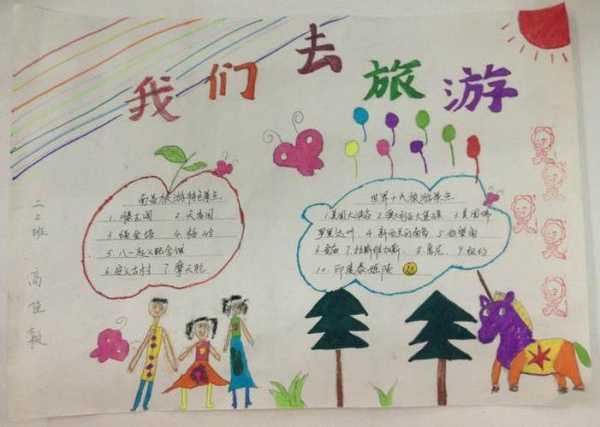 我们去旅游
南昌旅游特色景点
1.滕王阁 2.天香园
3.绳金塔 4.梅岭
5.八一起义纪念馆
6.安义古村 7.摩天轮
世界十大旅游景点
1.美国大峡谷 2.澳大利亚大堡礁 3.美国佛
罗里达州 4.新西兰的南岛 5.好望角
6.金庙 7.拉斯维加斯 8.悉尼 9.纽约
10.印度泰姬陵
二2班 高